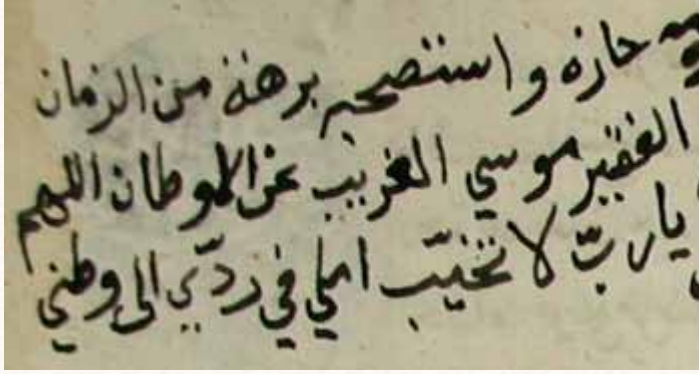 حازه واستصحبه برهة من الزمان
الفقير موسي الغريب عن الاوطان اللهم
يا ربّ لا تخيّب املي في ردّي الى وطني